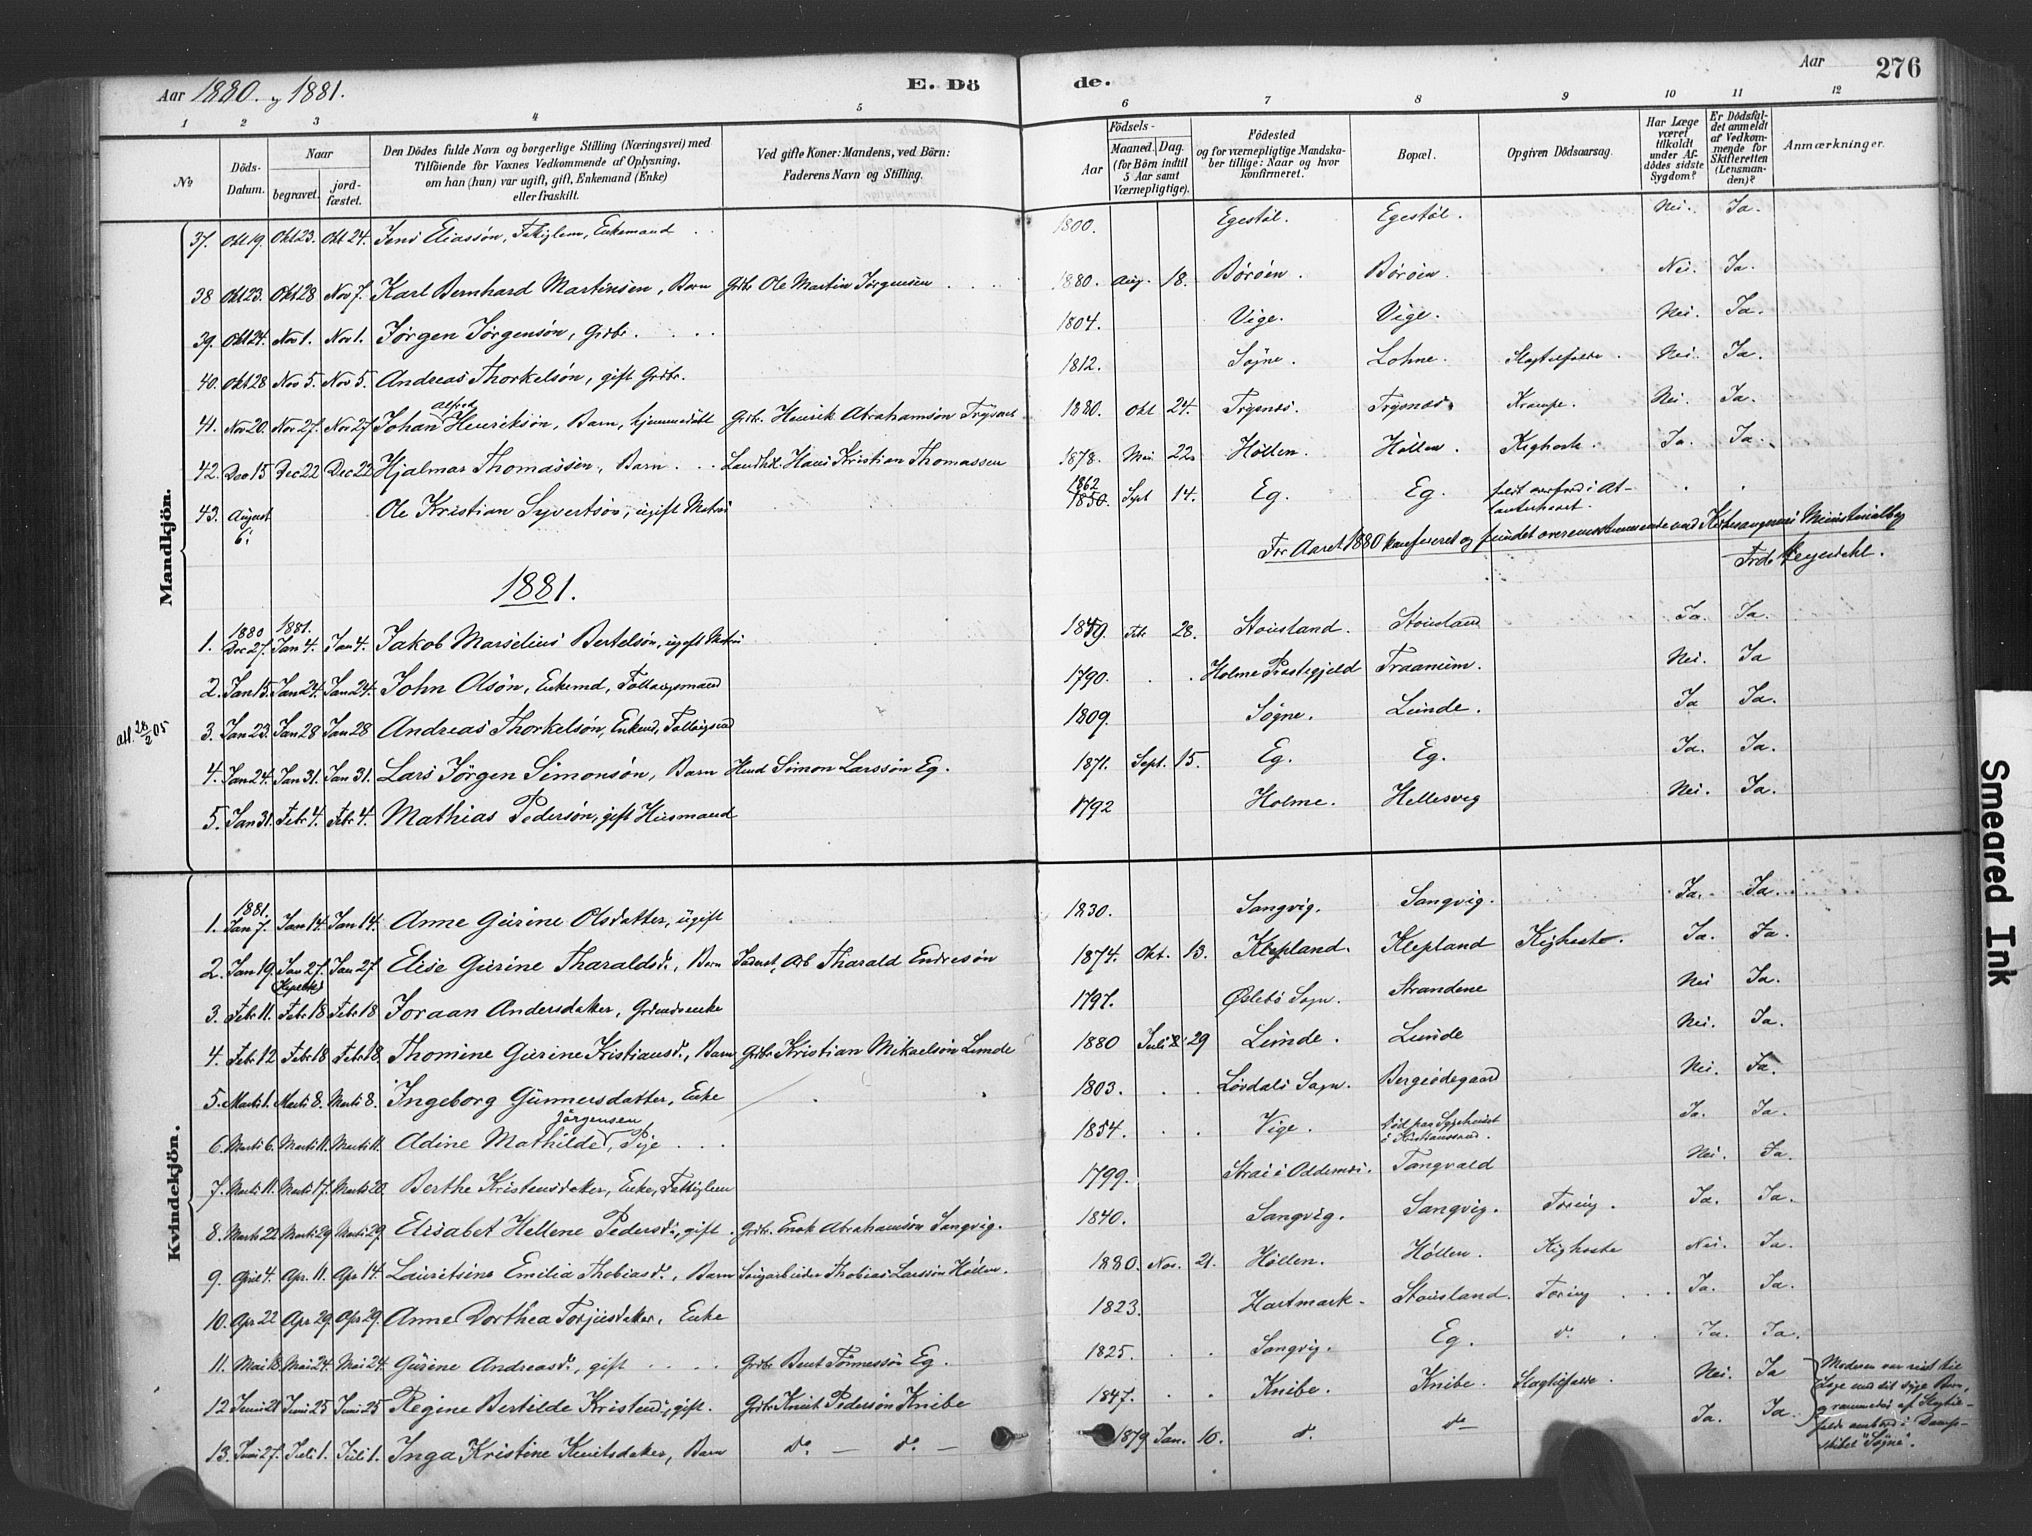 Aar 1880. og 1881.
E. Dö
de.
Aar
276
1 2 3 4 5 6 7 8 9 10 11 12
No
Döds-Datum.
Naar
begravet.
jord-fæstet.
Den Dödes fulde Navn og borgerlige Stilling (Næringsvei) med
Tilföiende for Voxnes Vedkommende af Oplysning,
om han (hun) var ugift, gift, Enkemand (Enke)
eller fraskilt.
Ved gifte Koner: Mandens, ved Börn:
Faderens Navn og Stilling.
Födsels-
Aar
Maaned. Dag.
(for Börn indtil
5 Aar samt
Værnepligtige).
Födested
og for værnepligtige Mandska-
ber tillige: Naar og hvor
konfirmeret.
Bopæl.
Opgiven Dödsaarsag.
Har Læge
været
tilkaldt
under Af-
dödes sidste
Sygdom?
Er Dödsfal-
det anmeldt
af Vedkom-
mende for
Skifteretten
(Lensman-
den)?
Anmærkninger.
Mandkjön.
37. Okt 19. Okt 23. Okt 24. Jens Eliassön, Fattiglem, Enkemand 1800. Egestöl. Egestöl. Nei. Ja.
38 Okt 23. Okt 28 Nov 7. Karl Bernhard Martinsen, Barn Grdbr Ole Martin Jørgensen 1880. Aug. 18. Börøen. Börøen. Nei. Ja.
39. Okt 24. Nov 1. Nov 1. Jørgen Jørgensön, Grdbr. 1804. Vige. Vige. Nei. Ja.
40. Okt 28 Nov 5. Nov 5. Andreas Thorkelsön, gift Grdbr. 1812. Søgne. Lohne. Slagtilfælde. Nei. Ja.
41. Nov 20. Nov 27. Nov 27 Johan Alfred Henriksön, Barn, hjemmedöbt Grdbr. Henrik Abrahamsön Trysnes 1880. Okt 24. Trysnes. Trysnes. Krampe. Nei. Ja.
42. Dec 15 Dec 22 Dec 22 Hjalmar Thomassen, Barn Landhdl. Hans Kristian Thomassen 1878. Mai 22 Höllen. Höllen. Kighoste. Ja. Ja.
43. August 6. Ole Kristian Syvertsön, ugift Matros 1862 1850. Sept 14. Eg. Eg. faldt overbord i At-
lanterhavet.
For Aaret 1880 konfereret og fundet overensstemmende med Kirkesangerens Ministerialbog
1881.
1. 1880 Dec 27. 1881. Jan 4. Jan 4. Jakob Marselius Bertelsön, ugift Matros 1859. Febr. 28. Stousland. Stousland Ja. Ja.
2. Jan 15. Jan 24. Jan 24. John Olsön, Enkemd, Föllaugsmand 1790. Holme Præstegjeld Fraanum. Nei. Ja
att. 28/2 05
3. Jan 23. Jan 28 Jan 28 Andreas Thorkelsön, Enkemd, Föllaugsmd 1809. Søgne. Lunde. Ja Ja.
4. Jan 24. Jan 31. Jan 31. Lars Jörgen Simonsön, Barn Husmd Simon Larssön Eg. 1871. Sept. 15. Eg. Eg. Ja. Ja.
5. Jan 31. Febr 4. Febr 4. Mathias Pedersön, gift Husmand 1792 Holme. Hellesvig Nei. Ja.
Kvindekjön.
1. 1881. Jan 7. Jan 14. Jan 14. Anne Gurine Olsdatter, ugift 1830. Sangvig. Sangvig. Ja. Ja.
2. Jan 19. Jan 27. Jan 27 Elise Gurine Tharaldsd., Barn Tharald Endresön 1874. Okt. 13. Klepland. Klepland Kighoste. Ja. Ja.
3. Febr 11. Febr 18 Febr 18 Joraan Andersdatter, Grdmdsenke 1797. Øslebö Sogn. Strandene Nei Ja.
4. Febr 12 Febr 18. Febr 18. Thomine Gurine Kristiansd., Barn Grdbr Kristian Mikaelsön Lunde 1880 Juli 29 Lunde. Lunde Nei. Ja.
5. Marts 1. Marts 8. Marts 8. Ingeborg Gunnersdatter, Enke 1803. Løvdals Sogn. Bergsödegaard Nei. Ja.
6. Marts 6. Marts 11. Marts 11. Adine Mathilde Jörgensen, Pige 1854. Vige. död paa Sygehuset
i Kristianssand. Ja. Ja.
7. Marts 11. Marts 17. Marts 20. Berthe Kristensdatter, Enke, Fattiglem 1799. Strai i Oddernes. Tangvald Nei. Ja.
8. Marts 22 Marts 29 Marts 29. Elisabet Hellene Pedersd., gift. Grdbr. Enok Abrahamsön Sangvig. 1840. Sangvig. Sangvig. Tæring. Ja. Ja.
9. April 4. Apr. 11. Apr 14. Lauritsine Emilia Thobiasd., Barn Thobias Larssön Höllen. 1880. Nov. 21. Höllen. Höllen. Kighoste Nei. Ja.
10. Apr 22 Apr 29. Apr 29. Anne Dorthea Torjusdatter, Enke 1823. Hartmark. Stousland. Tæring Ja. Ja.
11. Mai 18. Mai 24. Mai 24. Gurine Andreasd., gift Grdbr Bent Tönnessön Eg. 1825. Sangvig. Eg. do. Ja. Ja.
12 Juni 21 Juni 25 Juni 25 Regine Bertilde Kristensd., gift. Grdbr Knut Pedersön Knibe 1847. Knibe. Knibe. Slagtilfælde. Nei. Ja
Moderen var reist til
Læge med sit syge Barn,
af Slagtil-
fælde ombord i Damp-
skibet "Søgne".
13. Juni 27. Juli 1. Juli 1. Inga Kristine Knutsdatter, Barn do. — do. — 1879 Jan. 10. do. do. Ja. Ja.
Smeared Ink